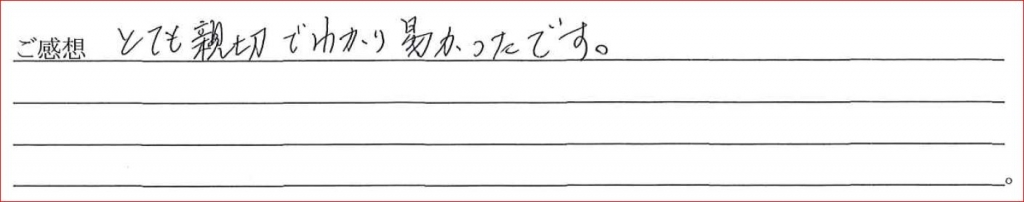 ご感想 とても親切でわかり易かったです。
。